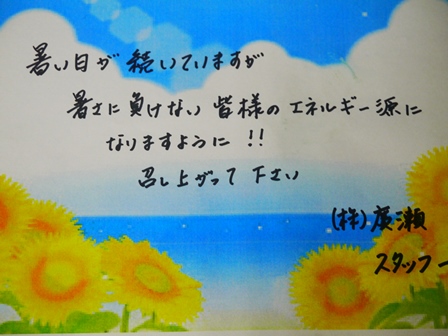 暑い日が続いていますが
暑さに負けない皆様のエネルギー源に
なりますように!!
召し上がって下さい
(株)廣瀬
スタッフ一